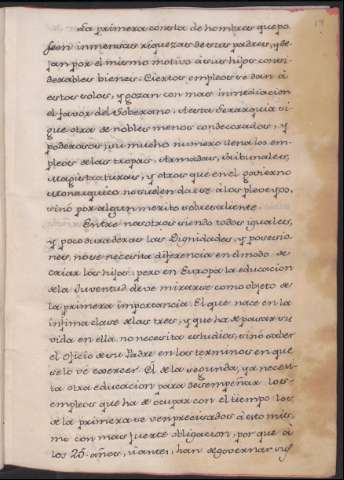 19
La primera consta de hombres que po
seen inmensas riquezas de sus padres, y de
jan por el mismo motivo á sus hijos consi
derables bienes. Ciertos empleos se dan á
estos solos, y gozan con mas inmediacion
el favor del Soberano. A esta Gerarquia si
gue otra de nobles menos condecorados, y
poderosos; su mucho numero llena los em
pleos de las tropas, Armadas, Tribunales,
Magistraturas, y otros que en el govierno
Monarquico no suelen darse á los plebeyos,
sinó por algun merito sobresaliente.
Entre nosotros siendo todos iguales,
y poco duraderas las Dignidades, y posesio
nes, no se necesita diferencia en el modo de
criar los hijos; pero en Europa la educacion
de la Juventud deve mirarse como objeto de
la primera importancia. El que nace en la
ínfima clase de las tres, y que ha de pasar su
vida en ella no necesita estudios, sinó saber
el Oficio de su Padre en los terminos en que
se lo vé exercer. El de la segunda, ya necesi
ta otra educacion para desempeñar los
empleos que ha de ocupar con el tiempo. Los
de la primera se ven precisados á esto mis
mo con mas fuerte obligacion, por que á
los 25 años, ó antes, han de governar sus